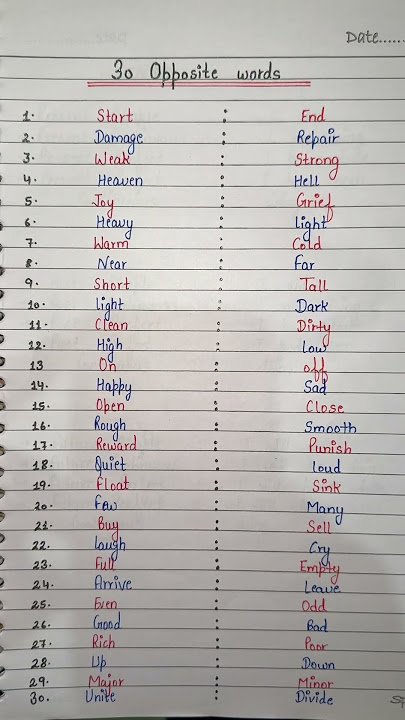 Date......
30 Opposite words
1. Start : End
2. Damage : Repair
3. Weak : Strong
4. Heaven : Hell
5. Joy : Grief
6. Heavy : Light
7. Warm : Cold
8. Near : Far
9. Short : Tall
10. light : Dark
11. Clean : Dirty
12. High : Low
13 On : off
14. Happy : Sad
15. Open : Close
16. Rough : Smooth
17. Reward : Punish
18. Quiet : loud
19. Float : Sink
20. Few : Many
21. Buy : Sell
22. laugh : Cry
23. Full : Empty
24. Arrive : Leave
25. Even : Odd
26. Good : Bad
27. Rich : Poor
28. Up : Down
29. Major : Minor
30. Unite : Divide